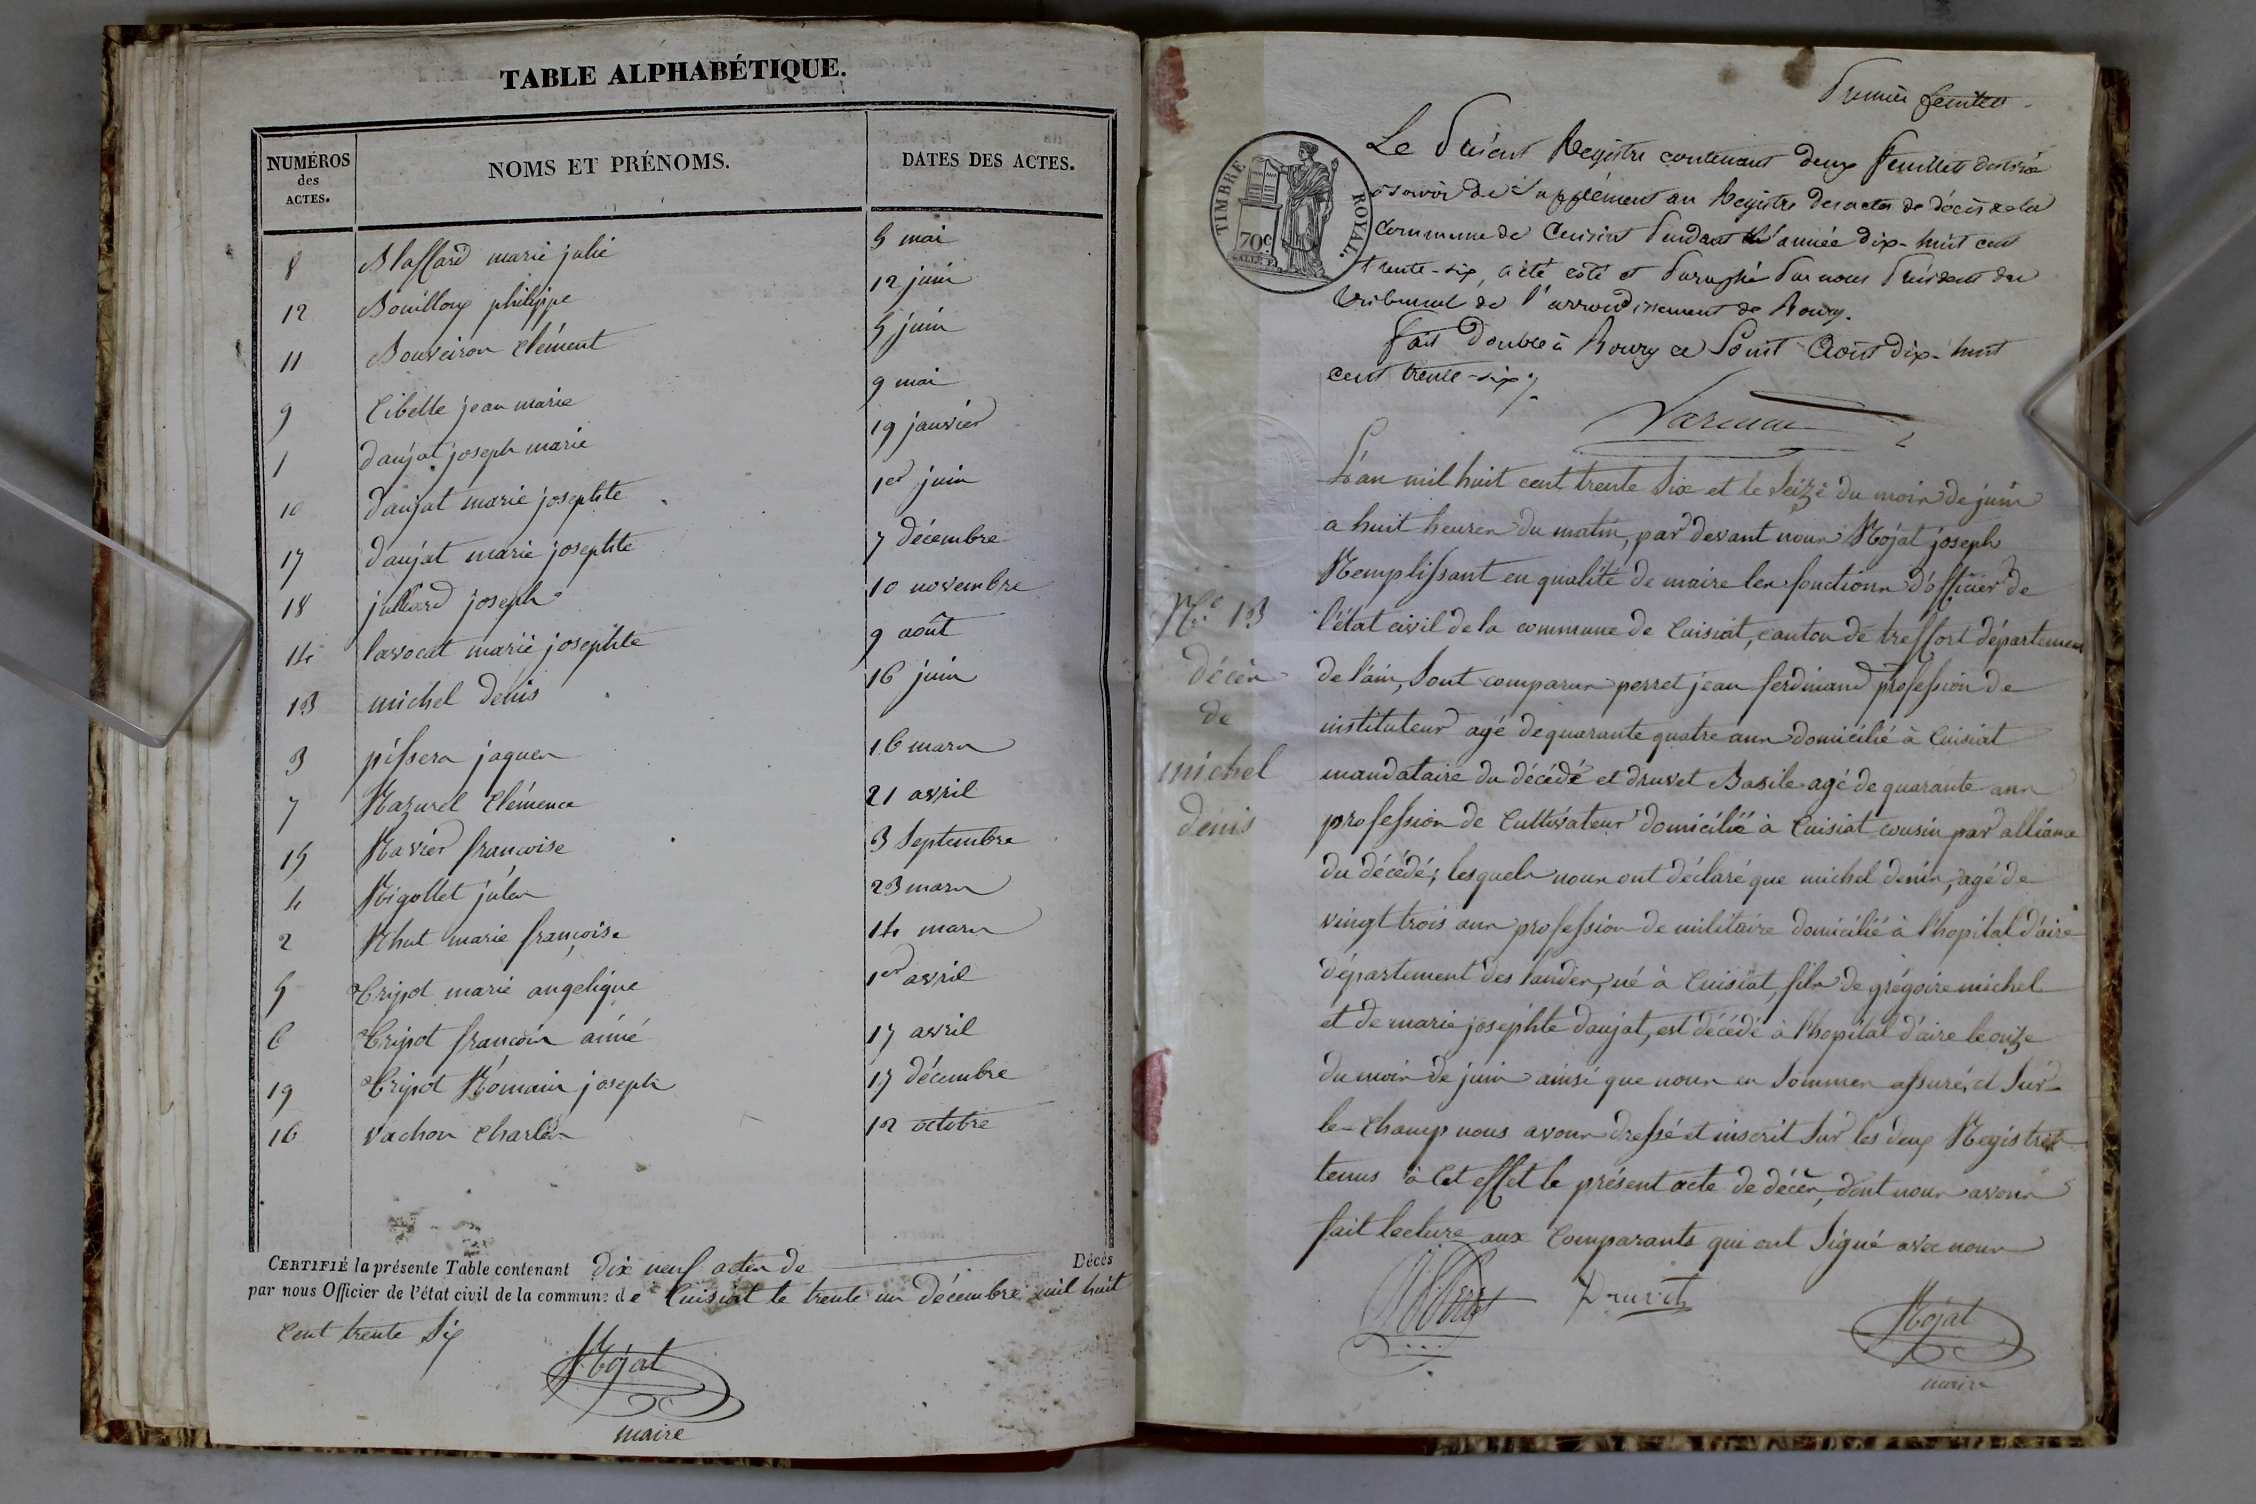 TABLE ALPHABÉTIQUE.
NUMÉROS des ACTES. NOMS ET PRÉNOMS. DATES DES ACTES.
8 Blaffard marie julie 5 mai
12 Bouilloux philippe 12 juin
11 Bouveiron Clément 5 juin
9 Cibelle jean marie 9 mai
1 daujat joseph marie 19 janvier
10 daujat marie josephte 1er juin
17 daujat marie josephte 7 décembre
18 julliard joseph 10 novembre
14 lavocat marie josephte 9 août
13 michel denis 16 juin
3 pissera jaques 16 mars
7 Razurel Clémence 21 avril
15 Ravier francoise 3 Septembre
4 Rigollet jules 23 mars
2 Rhut marie françoise 14 mars
5 Tripot marie angelique 1er avril
6 Tripot francois aimé 17 avril
19 Tripot Romain joseph 17 décembre
16 vachon Charles 12 octobre
CERTIFIÉ la présente Table contenant dix neuf actes de Décès
par nous Officier de l'état civil de la commune de Cuisiat le trente un décembre mil huit
Cent trente Six
Rojat
maire
Premier feuillet
TIMBRE ROYAL.
70c
Le Présent Registre contenant deux feuillets destinés
à servir de Supplément au Registre des actes de décès de la
Commune de Cuisiat Pendant l'année dix-huit cent
trente-six, a été coté et Paraphé Par nous Président du
tribunal de l'arrondissement de Bourg.
Fait Double à Bourg ce Août dix-huit
cent trente-six
L'an mil huit cent trente Six et le Seize du mois de juin
a huit heures du matin, par devant nous Rojat joseph
Remplissant en qualité de maire les fonctions d'officier de
l'état civil de la commune de Cuisiat, canton de treffort département
de l'ain, Sont comparus perret jean ferdinand profession de
instituteur agé de quarante quatre ans domicilié à Cuisiat
mandataire du décédé et druvet Basile agé de quarante ans
profession de Cultivateur domicilié à Cuisiat cousin par alliance
du décédé; lesquels nous ont déclaré que michel denis, agé de
vingt trois ans profession de militaire domicilié à l'hopital d'aire
département des landes, né à Cuisiat, fils de grégoire michel
et de marie josephte daujat, est décédé à l'hopital d'aire le onze
du mois de juin ainsi que nous en Sommes assuré, et Sur-
le-Champ nous avons dressé et inscrit Sur les deux Registres
tenus à Cet effet le présent acte de décès, dont nous avons
fait lecture aux Comparants qui ont Signé avec nous
No 13
décès
de
michel
denis
Druvet
Rojat
maire